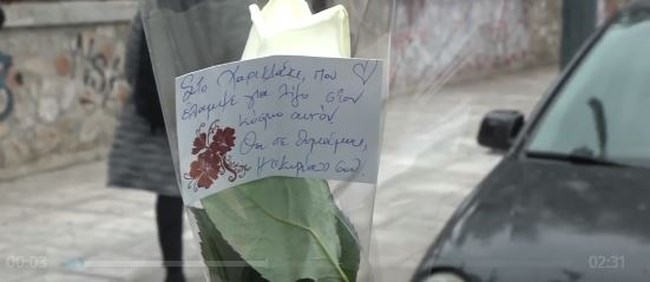 Στο Χαρικλάκι, που
έλαμψε για λίγο στον
κόσμο αυτόν
Θα σε θυμόμαστε,
Η κυρία σου.
00:03
02:31